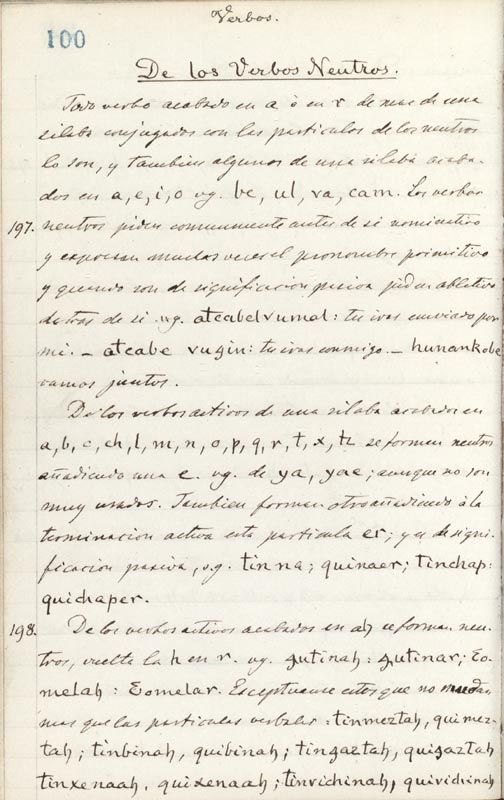 Verbos.
100
De los Verbos Neutros.
Todo verbo acabado en a ó en r de mas de una
silaba conjugados con las particulas de los neutros
lo son, y tambien algunos de una silaba acaba-
dos en a, e, i, o vg. be, ul, va, cam. Los verbos
197. neutros piden comunmente antes de si nominativo
y expresan muchas veces el pronombre primitivo
y quando son de significacion pasiva piden ablativo
detras de si vg. atcabelvumal: tu ivas enviado por
mi. – atcabe vugin: tu ivas conmigo. – hunankobe
vamos juntos.
De los verbos activos de una silaba acabados en
a, b, c, ch, l, m, n, o, p, q, r, t, x, tz se forman neutros
añadiendo una e. vg. de ya, yae; aunque no son
muy usados. Tambien forman otro añadiendo á la
terminacion activa esta particula er; y es de signi-
ficacion pasiva, vg. tinna; quinaer; tinchap:
quichaper.
198. De los verbos activos acabados en ah se forman neu-
tros, vuelta la h en r. vg. gutinah: gutinar; Eo-
melah: Eomelar. Exceptuanse estos que no mudan
mas que las particulas verbales: tinmeztah, quimez-
tah; tinbinah, quibinah; tingaztah, quigaztah
tinxenaah, quixenaah; tinvichinah, quivichinah